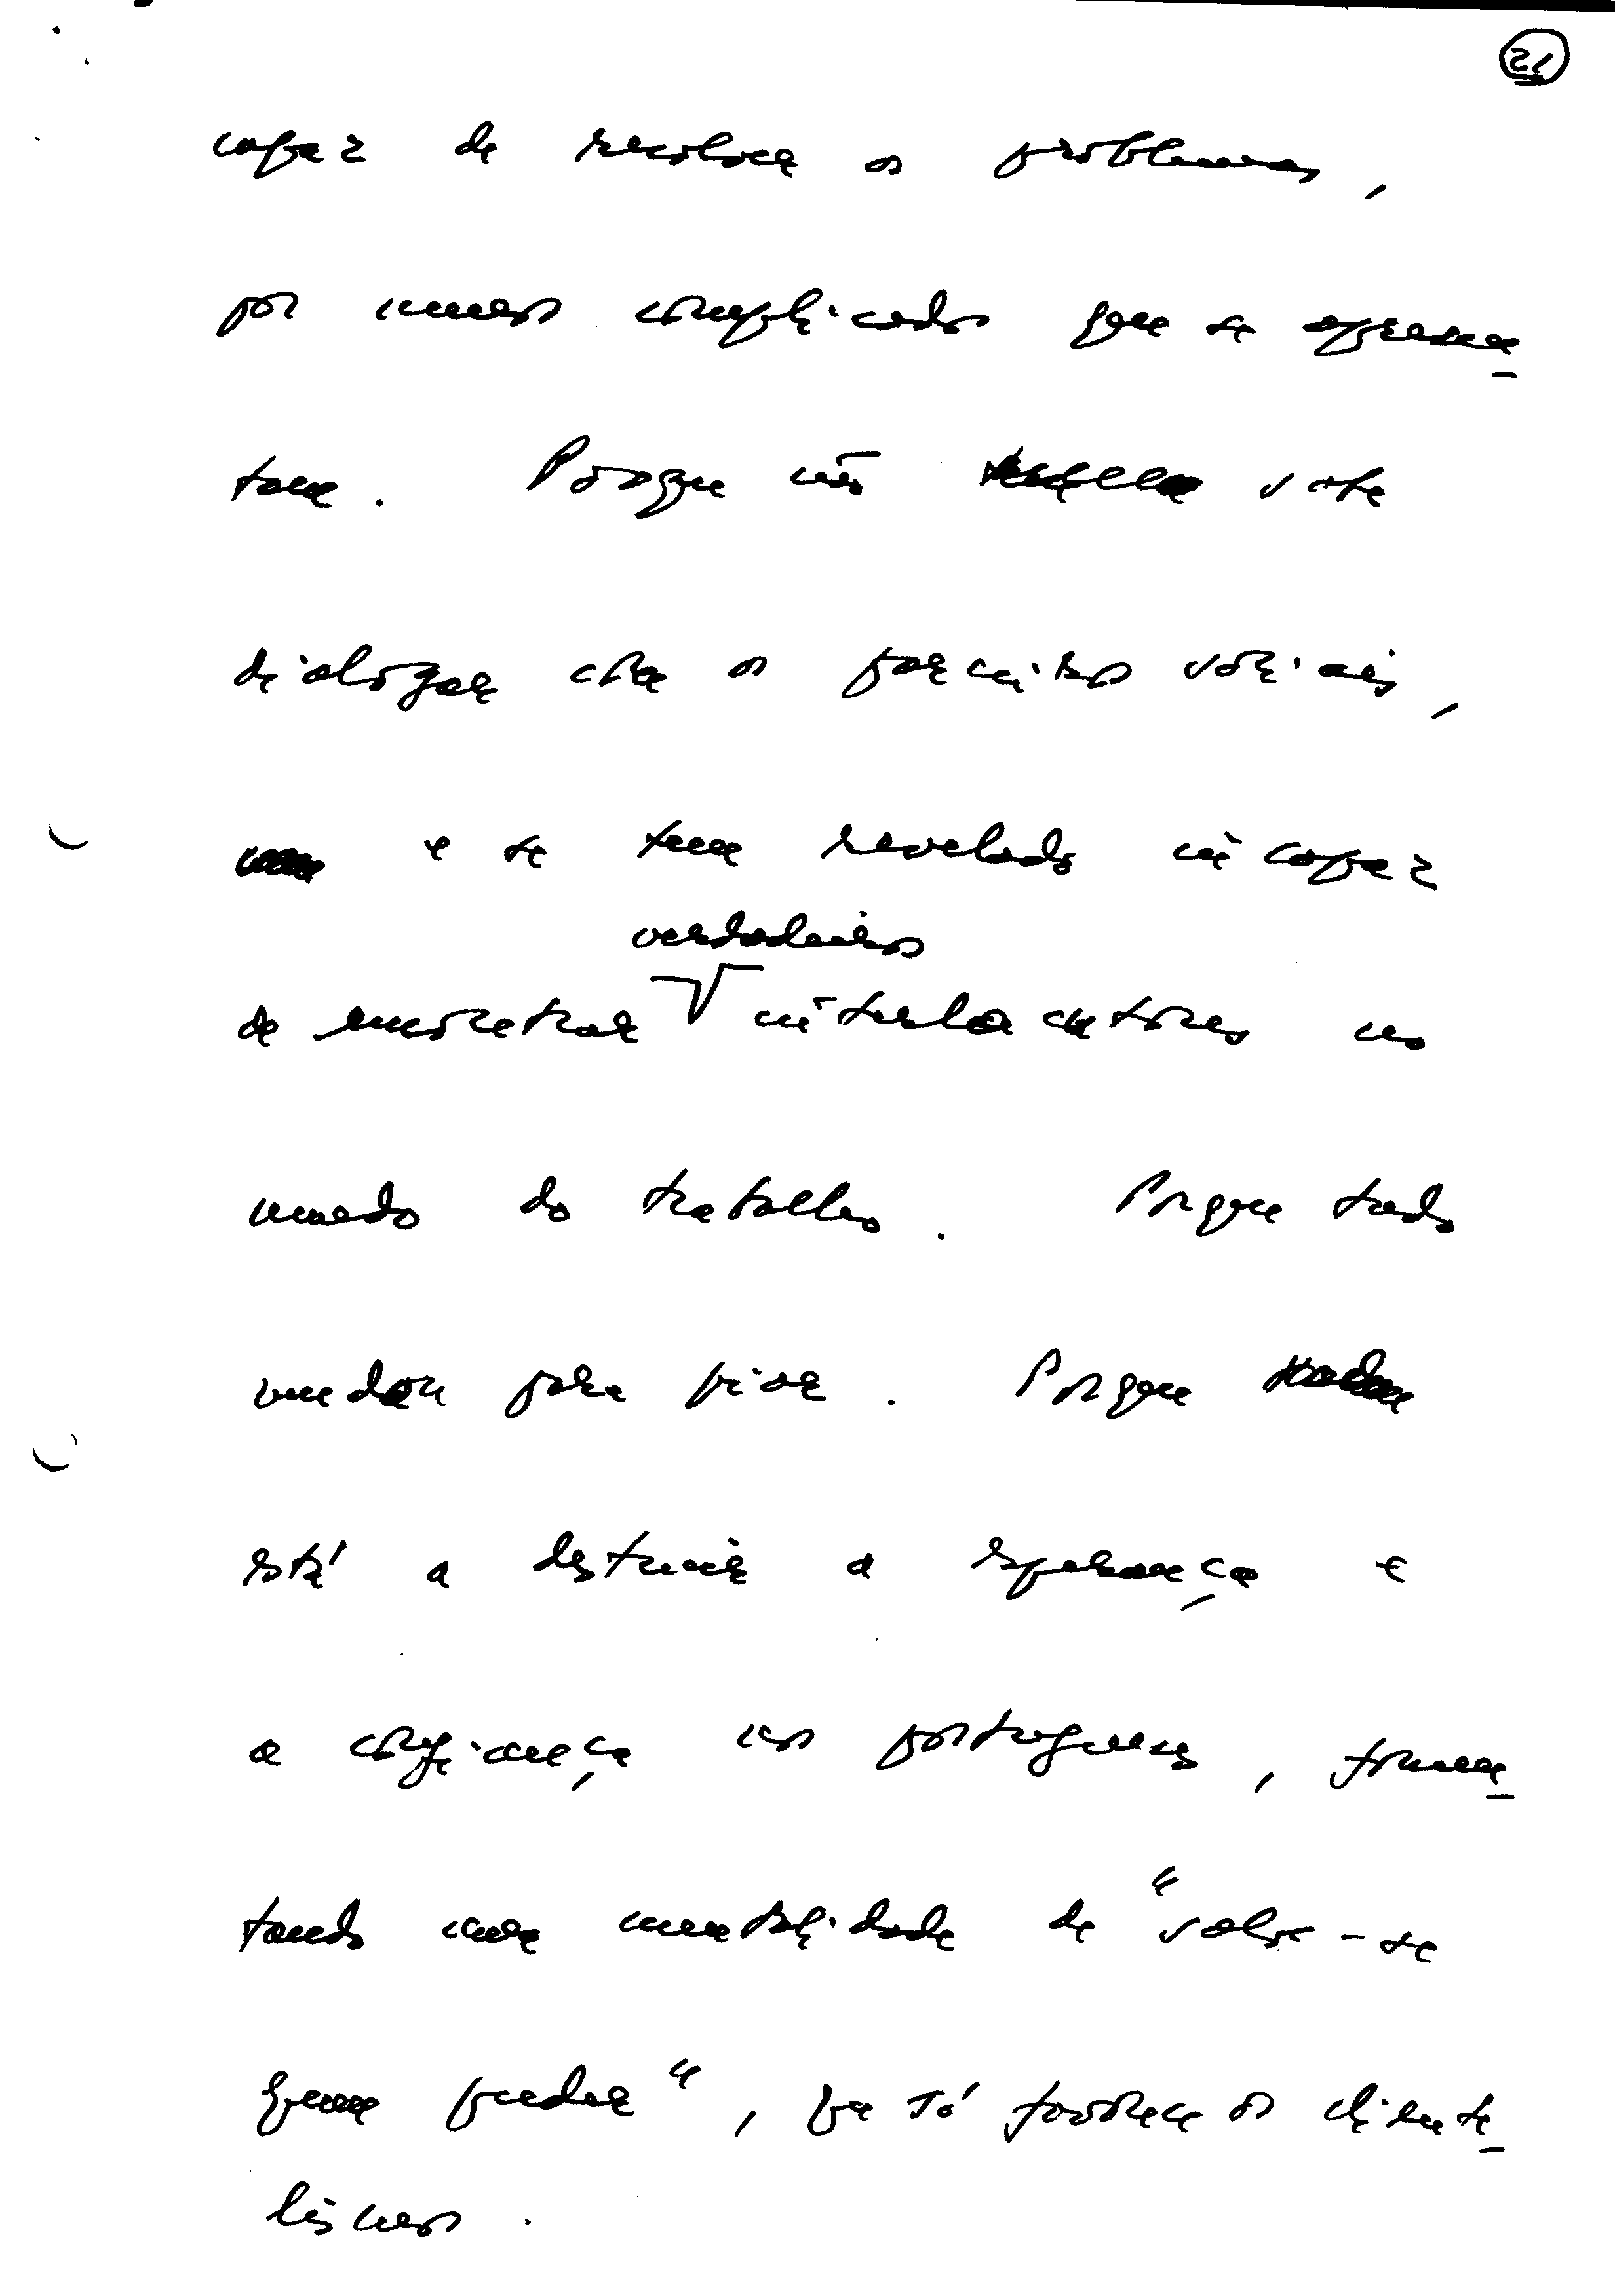 21
capaz de resolver os problemas,
por menos complicados que se apresen
tem. Porque não sabe
dialogar com os parceiros sociais,
e se tem revelado incapaz
verdadeiros
de encontrar interlocutores no
mundo do trabalho. Porque tudo
mudou para pior. Porque
está a destruir a esperança e
a confiança nos portugueses, fomen
tando uma mentalidade de "salve-se
quem puder", que só favorece os cliente
lismos.